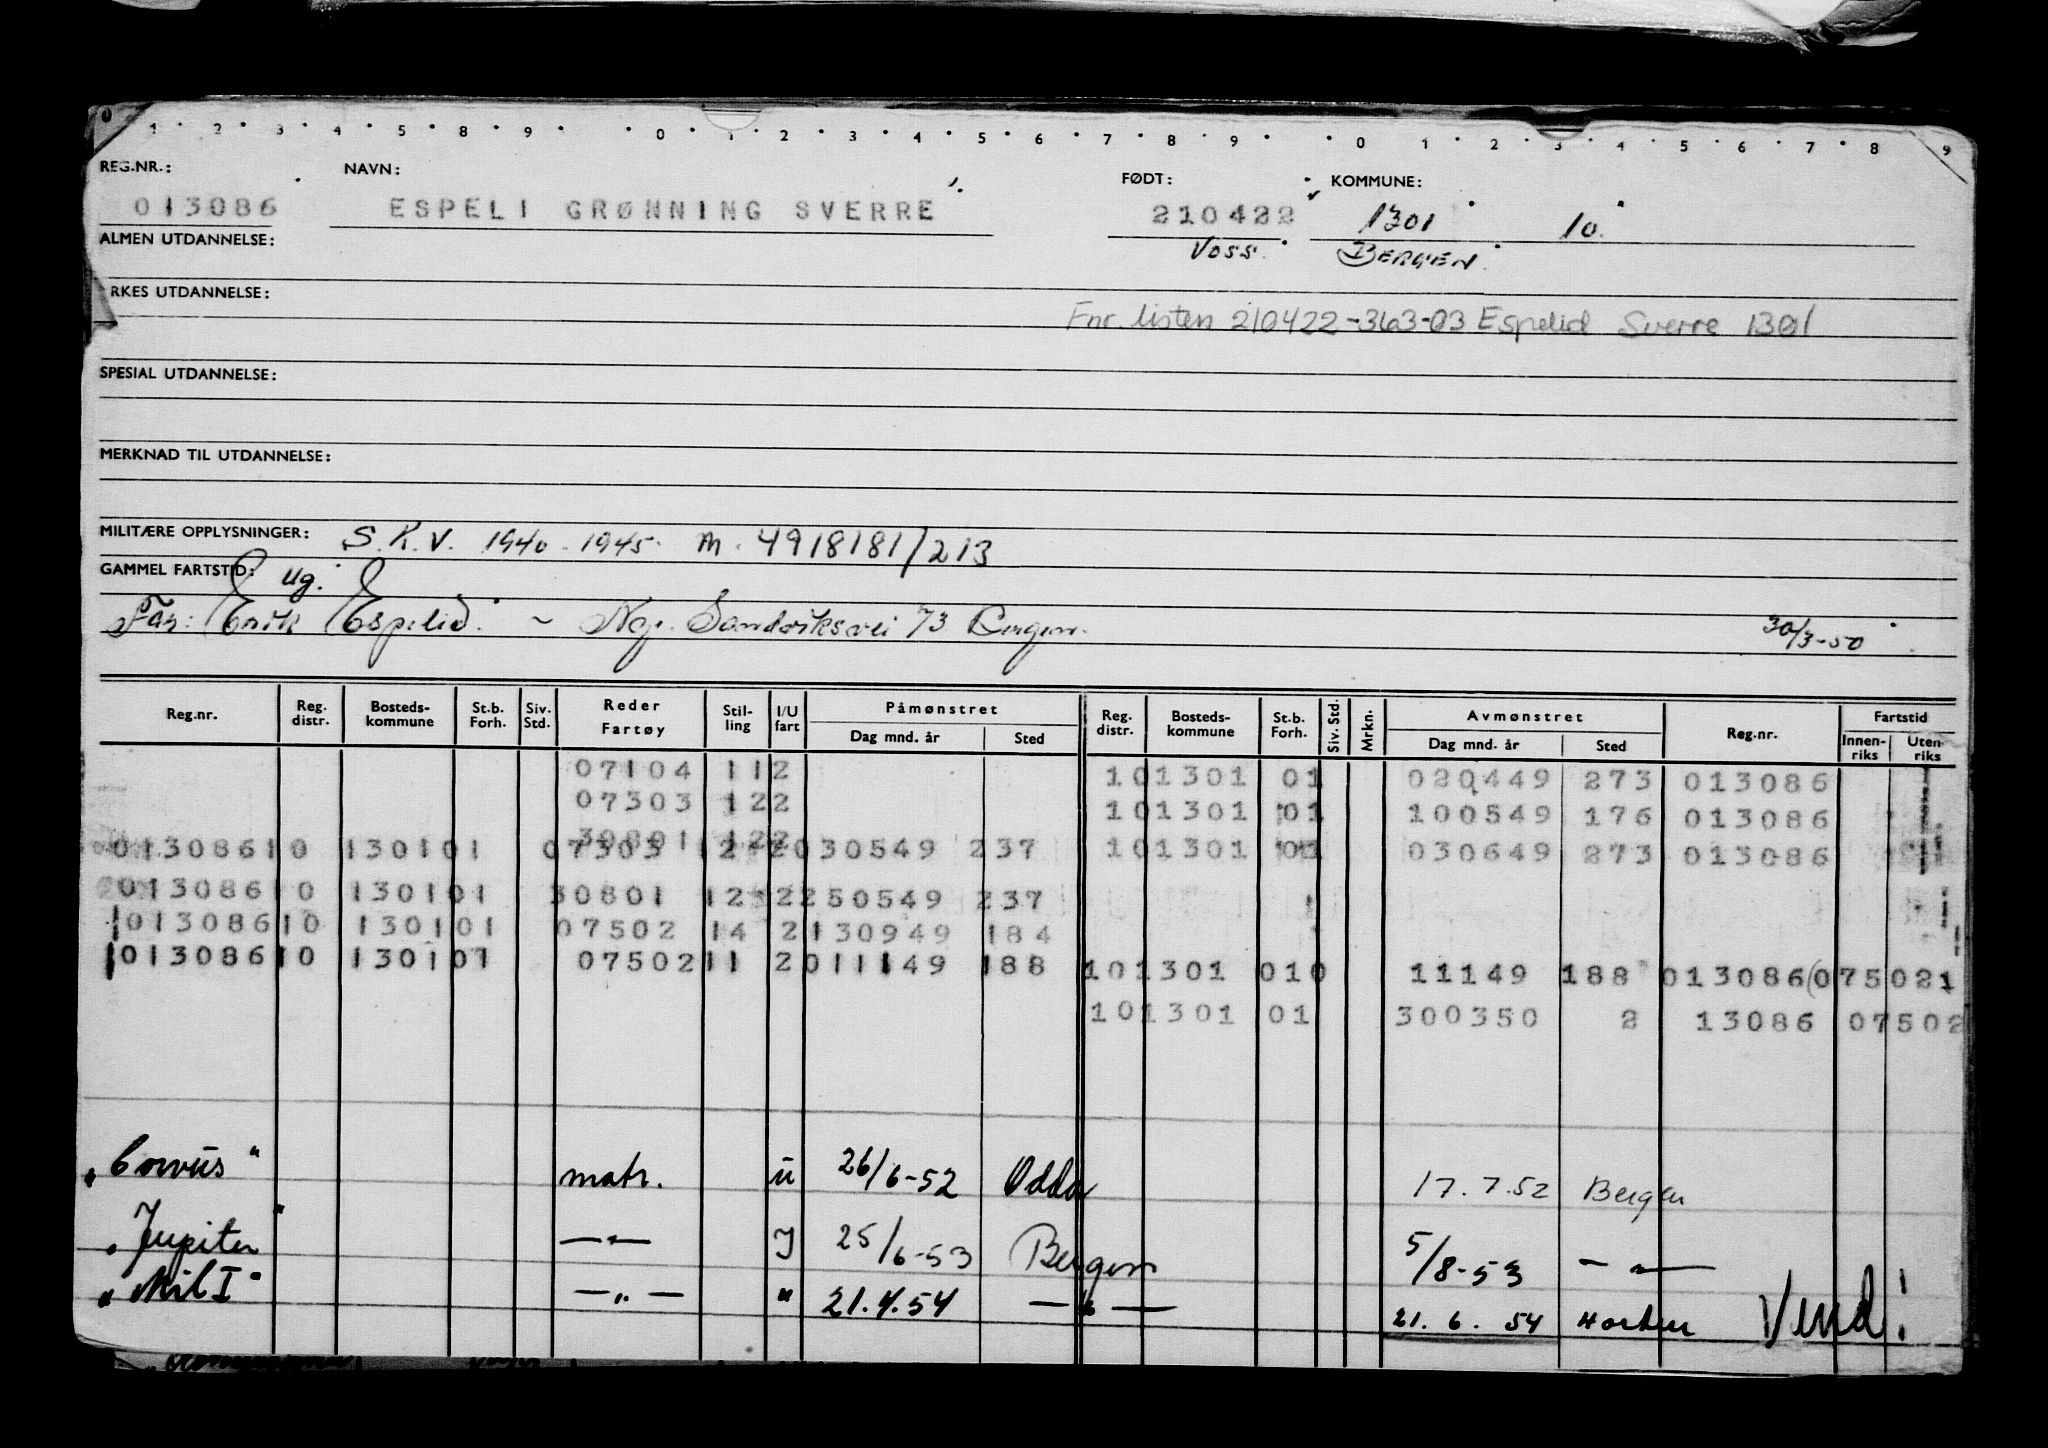 1 2 3 4 5 8 9 0 1 2 3 4 5 6 7 8 9 0 1 2 3 4 5 6 7 8 9
REG.NR.: NAVN: FØDT: KOMMUNE:
013086 ESPELI GRØNNING SVERRE 210422 1301 10.
ALMEN UTDANNELSE: Voss. BERGEN.
RKES UTDANNELSE:
Fnr. listen 210422-363-03 Espelid Sverre 1301
SPESIAL UTDANNELSE:
MERKNAD TIL UTDANNELSE:
MILITÆRE OPPLYSNINGER: S.K.V. 1940-1945. m. 4918181/213
GAMMEL FARTSTID: ug.
Far: Erik Espelid. ~ Sandviksvei 73 Bergen. 30/3-50
Reg.nr. Reg. distr. Bosteds-kommune St.b. Forh. Siv. Std. Reder Fartøy Stil-ling I/U fart Påmønstret Dag mnd. år Sted Reg. distr. Bosteds-kommune St.b. Forh. Siv. Std. Mrkn. Avmønstret Dag mnd. år Sted Reg.nr. Fartstid Innen-riks Uten-riks
07104 112 101301 01 020449 273 013086
07303 122 101301 01 100549 176 013086
30801 122
01308610 130101 07303 12 2030549 237 101301 01 030649 273 013086
01308610 130101 30801 12 2250549 237
01308610 130101 07502 14 2130949 184
01308610 130101 07502 11 2011149 188 101301 010 11149 188 013086 (075021
101301 01 300350 2 13086 07502
„Corvus" matr. u 26/6-52 Odda 17.7.52 Bergen
„Jupiter" —"— I 25/6-53 Bergen 5/8-53 —"—
„Mil I" —"— " 21.4.54 —"— 21.6.54 Horten Vend!